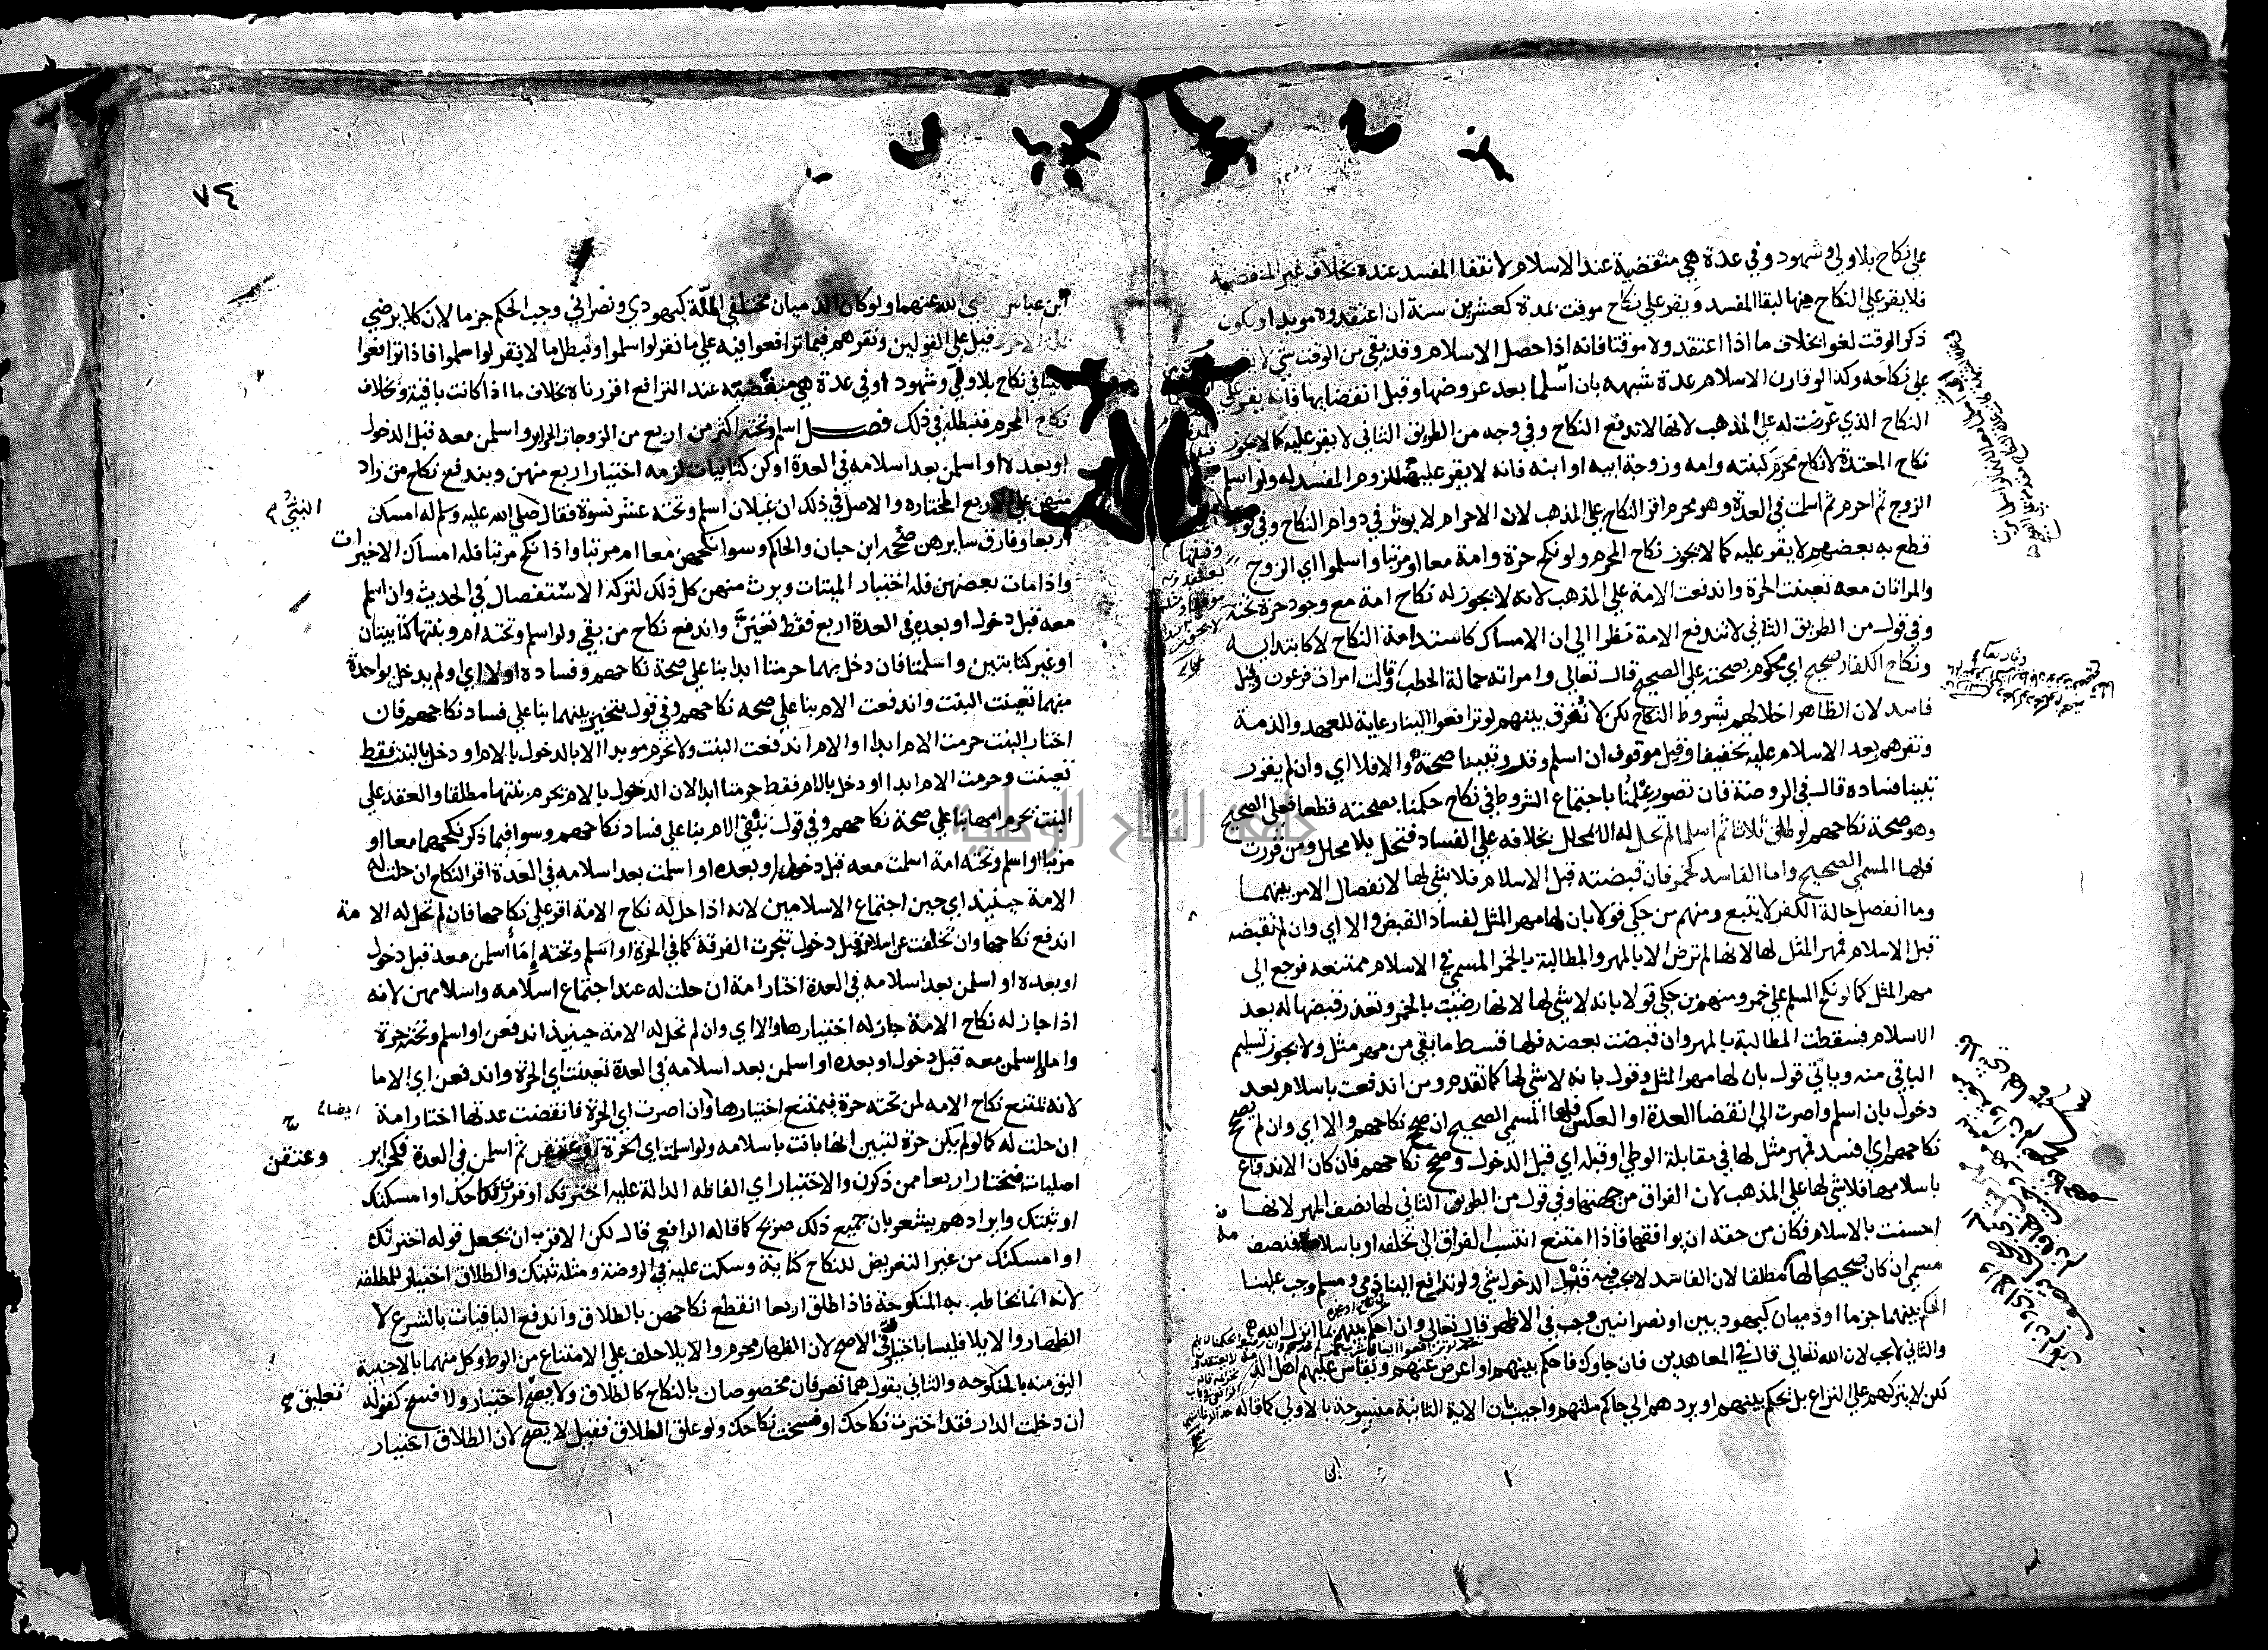 علي نكاح بلا ولي وشهود وفي عدة هي منقضية عند الاسلام لانتفا المفسد عنده بخلاف غير المنقضية
فلا يقر علي النكاح فيها لبقا المفسد ويقر علي نكاح موقت بمدة كعشرين سنة ان اعتقدوه موبدا ويكون
ذكر الوقت لغوا بخلاف ما اذا اعتقدوه موقتا فانه اذا حصل الاسلام وقد بقي من الوقت شي لا يقر
علي نكاحه وكذا لو قارن الاسلام عدة شبهة بان اسلما بعد عروضها وقبل انقضايها فانه يقر علي
النكاح الذي عرضت له علي المذهب لانها لا تدفع النكاح وفي وجه من الطريق الثاني لا يقر عليه كما لا يجوز
نكاح المعتدة لا نكاح محرم كبنته وامه وزوجة ابيه او ابنه فانه لا يقر عليه للزوم المفسد له ولو اسلم
الزوج ثم احرم ثم اسلمت في العدة وهو محرم اقر النكاح علي المذهب لان الاحرام لا يوثر في دوام النكاح وفي قول
قطع به بعضهم لا يقر عليه كما لا يجوز نكاح المحرم ولو نكح حرة وامة معا او مرتبا واسلموا اي الزوج
والمراتان معه تعينت الحرة واندفعت الامة علي المذهب لانه لا يجوز له نكاح امة مع وجود حرة تحته
وفي قول من الطريق الثاني لا تندفع الامة نظرا الي ان الامساك كاستدامة النكاح لا كابتدايه
ونكاح الكفار صحيح اي محكوم بصحته علي الصحيح قال تعالي وامراته حمالة الحطب وقالت امرات فرعون وقيل
فاسد لان الظاهر اخلالهم بشروط النكاح لكن لا نفرق بينهم لو ترافعوا الينا رعاية للعهد والذمة
ونقرهم بعد الاسلام عليه تخفيفا وقيل موقوف ان اسلم وقرر تبينا صحته والا فلا اي وان لم يقرر
تبينا فساده قال في الروضة فان تصور علمنا باجتماع الشروط في نكاح حكمنا بصحته قطعا فعلي الصحيح
وهو صحة نكاحهم لو طلق ثلاثا ثم اسلما لم تحل له الا بمحلل بخلافه علي الفساد فتحل بلا محلل ومن قررت
فلها المسمي الصحيح واما الفاسد كخمر فان قبضته قبل الاسلام فلا شي لها لانفصال الامر بينهما
وما انفصل حالة الكفر لا يتبع ومنهم من حكي قولا بان لها مهر المثل لفساد القبض والا اي وان لم تقبضه
قبل الاسلام فمهر المثل لها لانها لم ترض الا بالمهر والمطالبة بالخمر المسمي في الاسلام ممتنعة فرجع الي
مهر المثل كما لو نكح المسلم علي خمر ومنهم من حكي قولا بانه لا شي لها لانها رضيت بالخمر وتعذر قبضها له بعد
الاسلام فسقطت المطالبة بالمهر وان قبضت بعضه فلها قسط ما بقي من مهر مثل ولا يجوز تسليم
الباقي منه وياتي قول بان لها مهر المثل وقول بانه لا شي لها كما تقدم ومن اندفعت باسلام بعد
دخول بان اسلم واصرت الي انقضا العدة او العكس فلها المسمي الصحيح ان صح نكاحهم والا اي وان لم نصحح
نكاحهم اي فسد فمهر مثل لها في مقابلة الوطي او قبله اي قبل الدخول وصح نكاحهم فان كان الاندفاع
باسلامها فلا شي لها علي المذهب لان الفراق من جهتها وفي قول من الطريق الثاني لها نصف المهر لانها
احسنت بالاسلام فكان من حقه ان يوافقها فاذا امتنع انتسب الفراق الي تخلفه او باسلامه فنصف
مسمي ان كان صحيحا لها مطلقا لان الفاسد لا يجب فيه قبل الدخول شي ولو ترافع الينا ذمي ومسلم وجب علينا
الحكم بينهما جزما او ذميان كيهوديين او نصرانيين وجب في الاظهر قال تعالي وان احكم بينهم بما انزل الله
والثاني لا يجب لان الله تعالي قال في المعاهدين فان جاوك فاحكم بينهم او اعرض عنهم وتقاس عليهم اهل الذمة
لكن لا يتركهم علي النزاع بل يحكم بينهم او يردهم الي حاكم ملتهم واجيب بان الاية الثانية منسوخة بالاولي كما قاله
ابن
٧٤
ابن عباس رضي الله عنهما ولو كان الذميان مختلفي الملة كيهودي ونصراني وجب الحكم جزما لان كلا لا يرضي
بملة الاخر وقيل علي القولين ونقرهم فيما ترافعوا فيه علي ما نقر لو اسلموا ونبطل ما لا نقر لو اسلموا فاذا ترافعوا
الينا في نكاح بلا ولي وشهود او في عدة هي منقضية عند الترافع اقررناه بخلاف ما اذا كانت باقية وبخلاف
نكاح المحرم فنبطله في ذلك فصل اسلم وتحته اكثر من اربع من الزوجات الحراير واسلمن معه قبل الدخول
او بعده او اسلمن بعد اسلامه في العدة او كن كتابيات لزمه اختيار اربع منهن ويندفع نكاح من زاد
منهن علي الاربع المختارة والاصل في ذلك ان غيلان اسلم وتحته عشر نسوة فقال صلي الله عليه وسلم له امسك
اربعا وفارق سايرهن صححه ابن حبان والحاكم وسوا نكحهن معا ام مرتبا واذا نكح مرتبا فله امساك الاخيرات
واذا مات بعضهن فله اختيار الميتات ويرث منهن كل ذلك لتركه الاستفصال في الحديث وان اسلم
معه قبل دخول او بعده في العدة اربع فقط تعين واندفع نكاح من بقي ولو اسلم وتحته ام وبنتها كتابيتان
او غير كتابيتين واسلمتا فان دخل بهما حرمتا ابدا بنا علي صحة نكاحهم وفساده او لا اي ولم يدخل بواحدة
منهما تعينت البنت واندفعت الام بنا علي صحه نكاحهم وفي قول يتخير بينهما بنا علي فساد نكاحهم فان
اختار البنت حرمت الام ابدا او الام اندفعت البنت ولا تحرم موبدا الا بالدخول بالام او دخل بالبنت فقط
تعينت وحرمت الام ابدا او دخل بالام فقط حرمتا ابدا لان الدخول بالام يحرم بنتها مطلقا والعقد علي
البنت يحرم امها بنا علي صحة نكاحهم وفي قول تبقي الام بنا علي فساد نكاحهم وسوا فيما ذكر نكحهما معا او
مرتبا او اسلم وتحته امة اسلمت معه قبل دخول او بعده او اسلمت بعد اسلامه في العدة اقر النكاح ان حلت له
الامة حينيذ اي حين اجتماع الاسلامين لانه اذا حل له نكاح الامة اقر علي نكاحها فان لم تحل له الامة
اندفع نكاحها وان تخلفت عن اسلامه قبل دخول تنجزت الفرقة كما في الحرة او اسلم وتحته إما أسلمن معه قبل دخول
او بعده او اسلمن بعد اسلامه في العدة اختار امة ان حلت له عند اجتماع اسلامه واسلامهن لانه
اذا جاز له نكاح الامة جاز له اختيارها والا اي وان لم تحل له الامة حينيذ اندفعن او اسلم وتحته حرة
واما اسلمن معه قبل دخول او بعده او اسلمن بعد اسلامه في العدة تعينت اي الحرة واندفعن اي الاما
لانه يمتنع نكاح الامه لمن تحته حرة فيمتنع اختيارها وان اصرت اي الحرة فانقضت عدتها اختار امة
ان حلت له كما لو لم يكن حرة لتبين انها بانت باسلامه ولو اسلمت اي الحرة ثم اسلمن في العدة فكحراير
وعتقن
اصليات فيختار اربعا ممن ذكرن والاختيار اي الفاظه الدالة عليه اخترتك او قررت نكاحك او امسكتك
او ثبتك وايرادهم يشعر بان جميع ذلك صريح كما قاله الرافعي قال لكن الاقرب ان يجعل قوله اخترتك
او امسكتك من غير التعريض للنكاح كناية وسكت عليه في الروضة ومثله ثبتك والطلاق اختيار للمطلقة
لانه انما يخاطب به المنكوحة فاذا طلق اربعا انقطع نكاحهن بالطلاق واندفع الباقيات بالشرع لا
الظهار والايلا فليسا باختيار في الاصح لان الظهار محرم والايلا حلف علي الامتناع من الوطء وكل منهما بالاجنبية
اليق منه بالمنكوحه والثاني يقول هما تصرفان مخصوصان بالنكاح كالطلاق ولا يصح اختيار ولا فسخ كقوله
تعليق
ان دخلت الدار فقد اخترت نكاحك او فسخت نكاحك ولو علق الطلاق فقيل لا يصح لان الطلاق اختيار